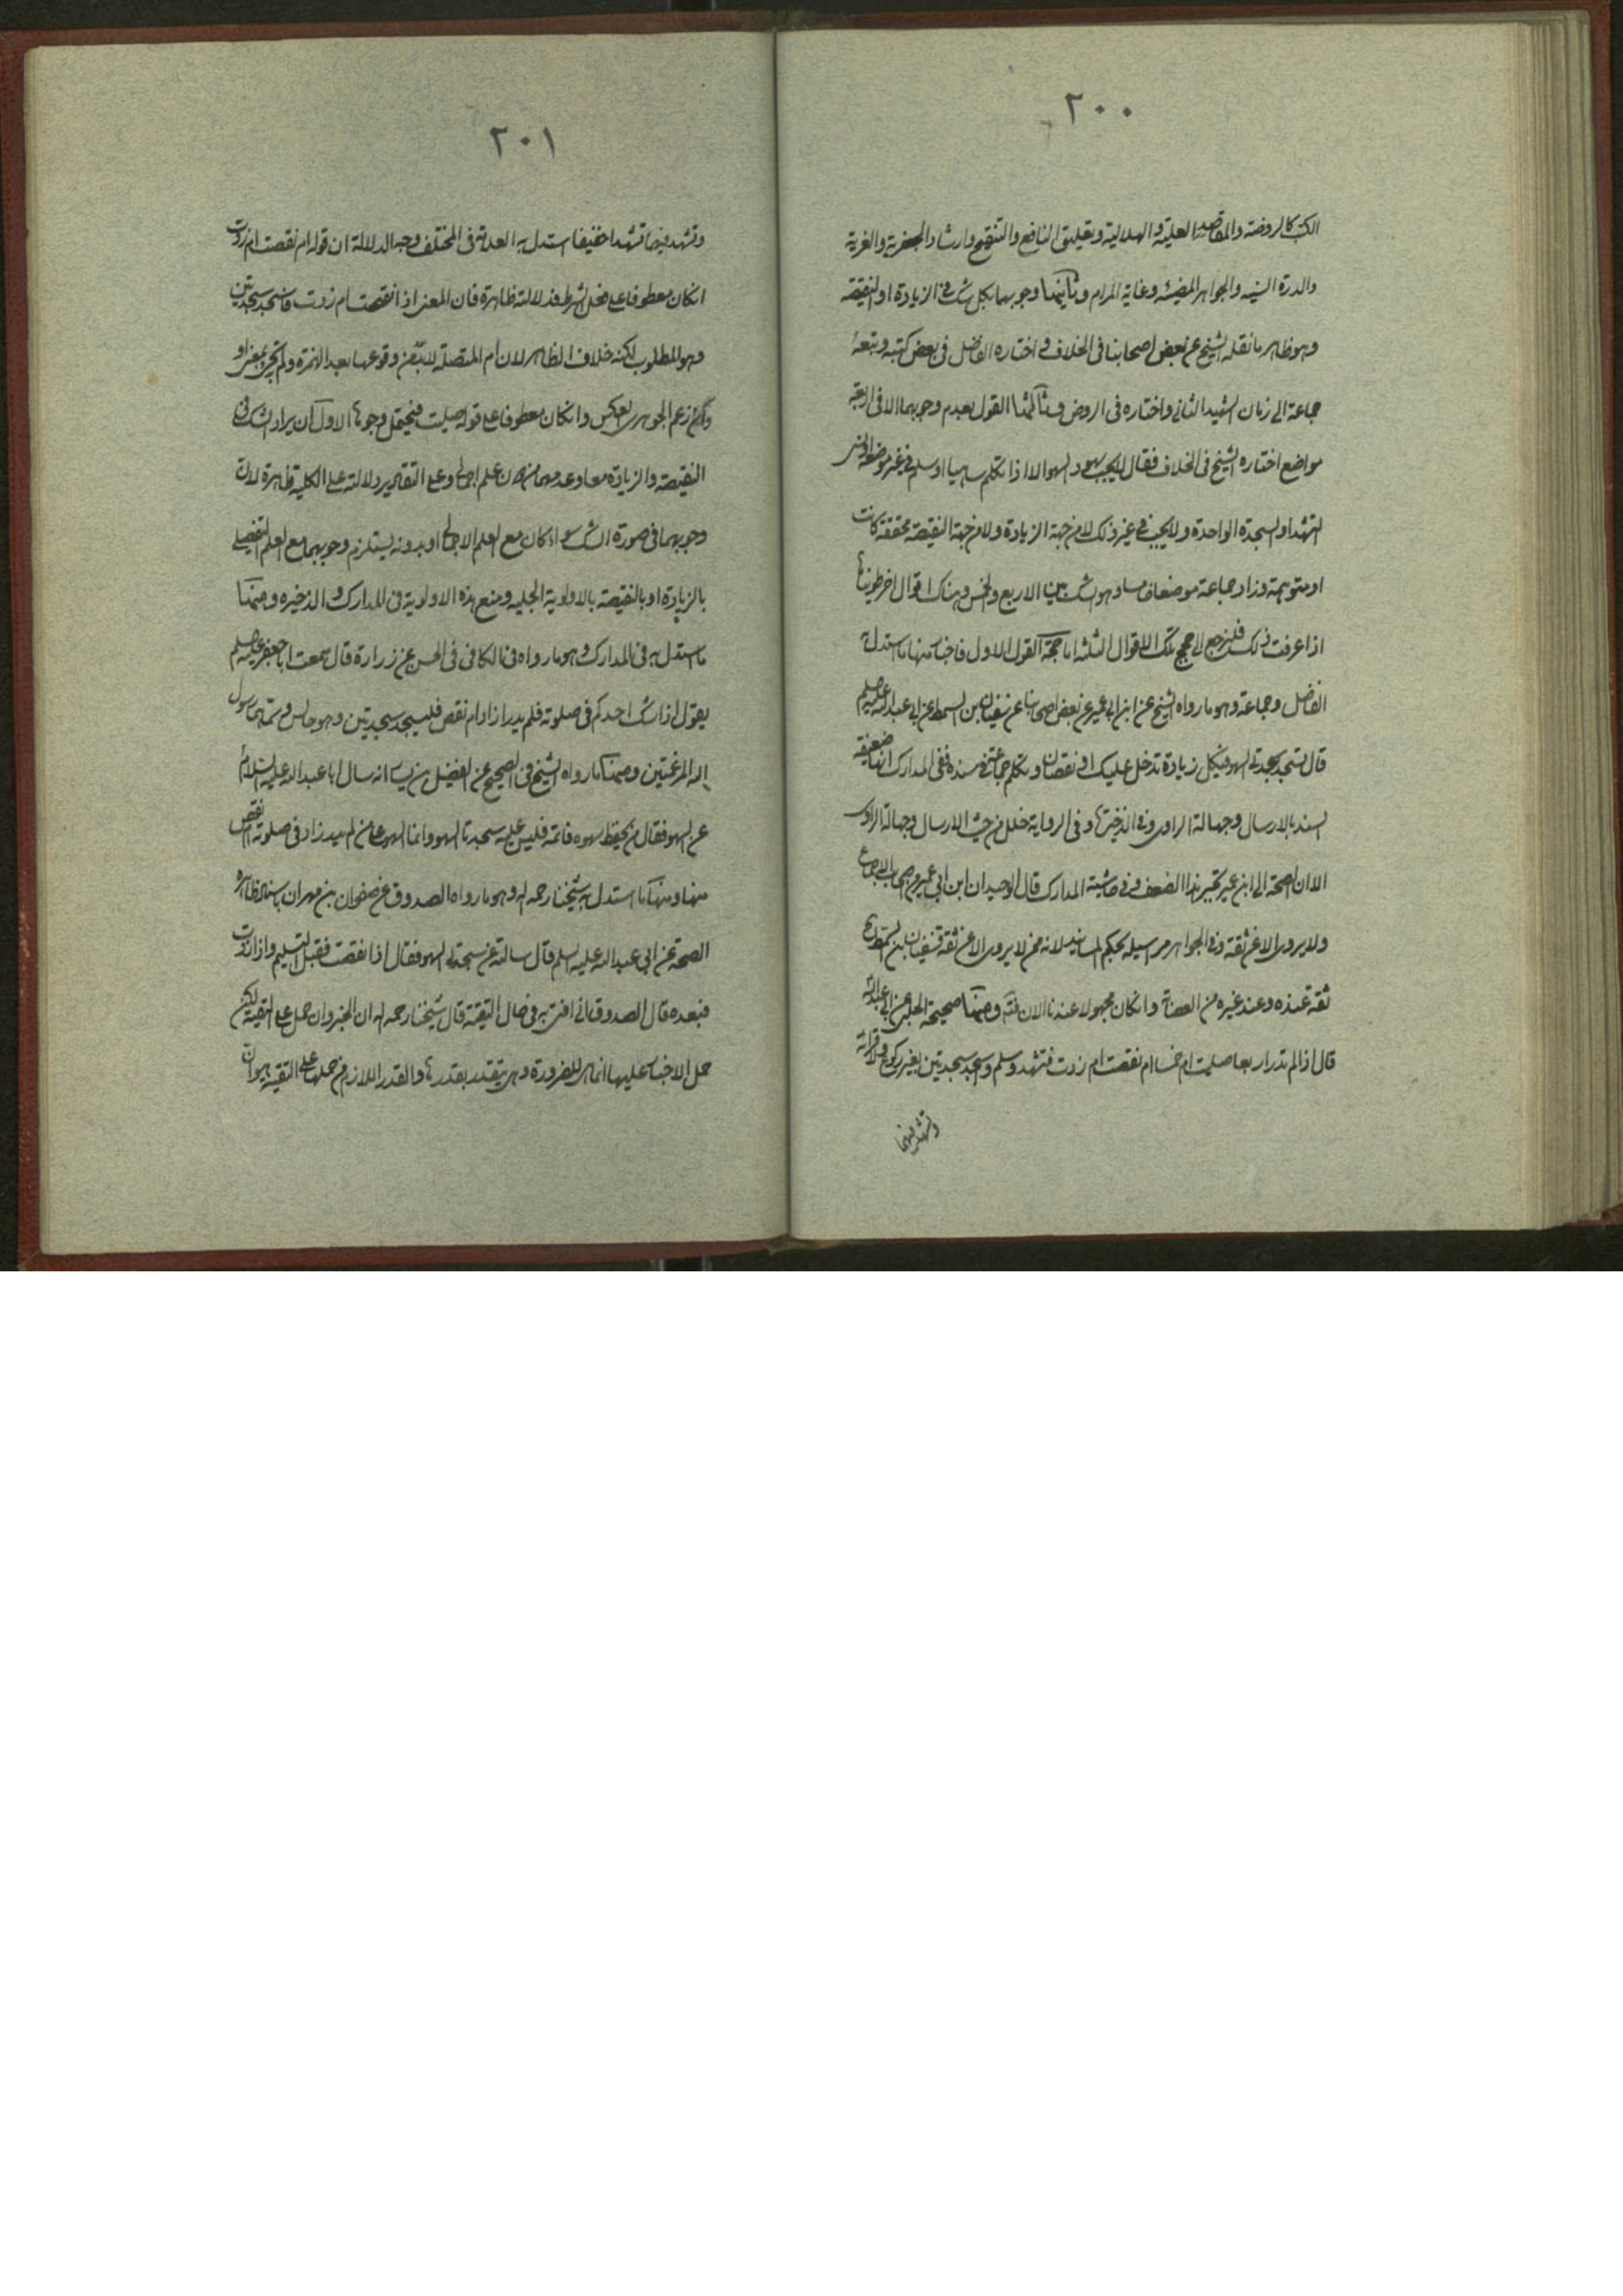 ٢٠٠
الكتب كالروضة والمقاصد العلية والهلالية وتعليق النافع والتنقيح وارشاد الجعفرية والغرية
والدرة السنيه والجواهر المضيئه وغاية المرام وثانيها وجوبهما بكل شك فى الزيادة او النقيصه
وهو ظاهر ما نقله الشيخ عن بعض اصحابنا فى الخلاف واختاره الفاضل فى بعض كتبه وتبعه
جماعة الى زمان الشهيد الثانى واختاره فى الروض وثالثها القول بعدم وجوبهما الا فى اربعة
مواضع اختاره الشيخ فى الخلاف فقال لا يجب سجود السهو الا اذا تكلم ساهيا او سلم فى غير موضعه او نسى
التشهد او السجدة الواحدة ولا يجب فى غير ذلك لا من جهة الزيادة ولا من جهة النقيصه محققة كانت
او متوهمة وزاد جماعة موضعا خامسا وهو الشك بين الاربع والخمس وهناك اقوال اخر طويناها
اذا عرفت ذلك فلنرجع الى حجج تلك الاقوال الثلثه اما حجة القول الاول فاخبار منها ما استدل به
الفاضل وجماعة وهو ما رواه الشيخ عن ابن ابى عمير عن بعض اصحابنا عن سفيان بن السمط عن ابى عبد الله عليه السلم
قال تسجد سجدتى السهو فى كل زيادة تدخل عليك او نقصان وتكلم جماعة فى سنده ففى المدارك انها ضعيفة
السند بالارسال وجهالة الراوى وفى الذخيرة وفى الرواية خلل من حيث الارسال وجهالة الراوى
الا ان الصحة الى ابن ابى عمير تجبر هذا الضعف وفى حاشية المدارك قال الوحيد ان ابن ابى عمير من اصحاب الاجماع
ولا يروى الا عن ثقة وفى الجواهر مرسيله بحكم المسانيد لانه ممن لا يروى الا عن ثقة فسفيان بن السمط
ثقة عنده وعند غيره من العصابة وان كان مجهولا عندنا الان فتم ومنها صحيحة الحلبى عن ابى عبد الله
قال اذا لم تدر اربعا صليت ام خمسا ام نقصت ام زدت فتشهد وسلم واسجد سجدتين بغير ركوع ولا قرائة
وتشهد فيهما
٢٠١
وتشهد فيهما تشهدا خفيفا استدل به العلامة فى المختلف وجه الدلالة ان قوله ام نقصت ام زدت
ان كان معطوفا على فعل الشرط فدلالته ظاهرة فان المعنى اذا نقصت ام زدت فاسجد سجدتين
وهو المطلوب لكنه خلاف الظاهر لان ام المتصلة لا بد من وقوعها بعد الهمزة ولم تجئ بمعنى او
وان زعم الجوهرى العكس وان كان معطوفا على قوله صليت فيحتمل وجوها الاول ان يراد الشك فى
النقيصه والزيادة معا وعدمهما من دون علم اجمالى وعلى التقادير دلالته على الكلية ظاهرة لان
وجوبهما فى صورة الشك سواء كان مع العلم الاجمالى او بدونه يستلزم وجوبهما مع العلم التفصيلى
بالزيادة او بالنقيصه بالاولوية الجليه ومنع هذه الاولوية فى المدارك والذخيره ومنها
ما استدل به فى المدارك وهو ما رواه فى الكافى فى الحسن عن زرارة قال سمعت ابا جعفر عليه السلم
يقول اذا شك احدكم فى صلوته فلم يدر ازاد ام نقص فليسجد سجدتين وهو جالس وسماهما رسول
الله المرغمتين ومنها ما رواه الشيخ فى الصحيح عن الفضيل بن يسار انه سال ابا عبد الله عليه السلام
عن السهو فقال من يحفظ سهوه فاتمه فليس عليه سجدتا السهو وانما السهو على من لم يدر زاد فى صلوته ام نقص
منها ومنها ما استدل به شيخنا رحمه الله وهو ما رواه الصدوق عن صفوان بن مهران بسند ظاهره
الصحة عن ابى عبد الله عليه السلم قال سالته عن سجدتى السهو فقال اذا نقصت فقبل التسليم واذا زدت
فبعده قال الصدوق انى افتى به فى حال التقية قال شيخنا رحمه الله ان الخبر وان حمل على التقية لكن
حمل الاخبار عليها انما هى للضرورة وهى يتقدر بقدرها والقدر اللازم من حملها على التقيه هو ان